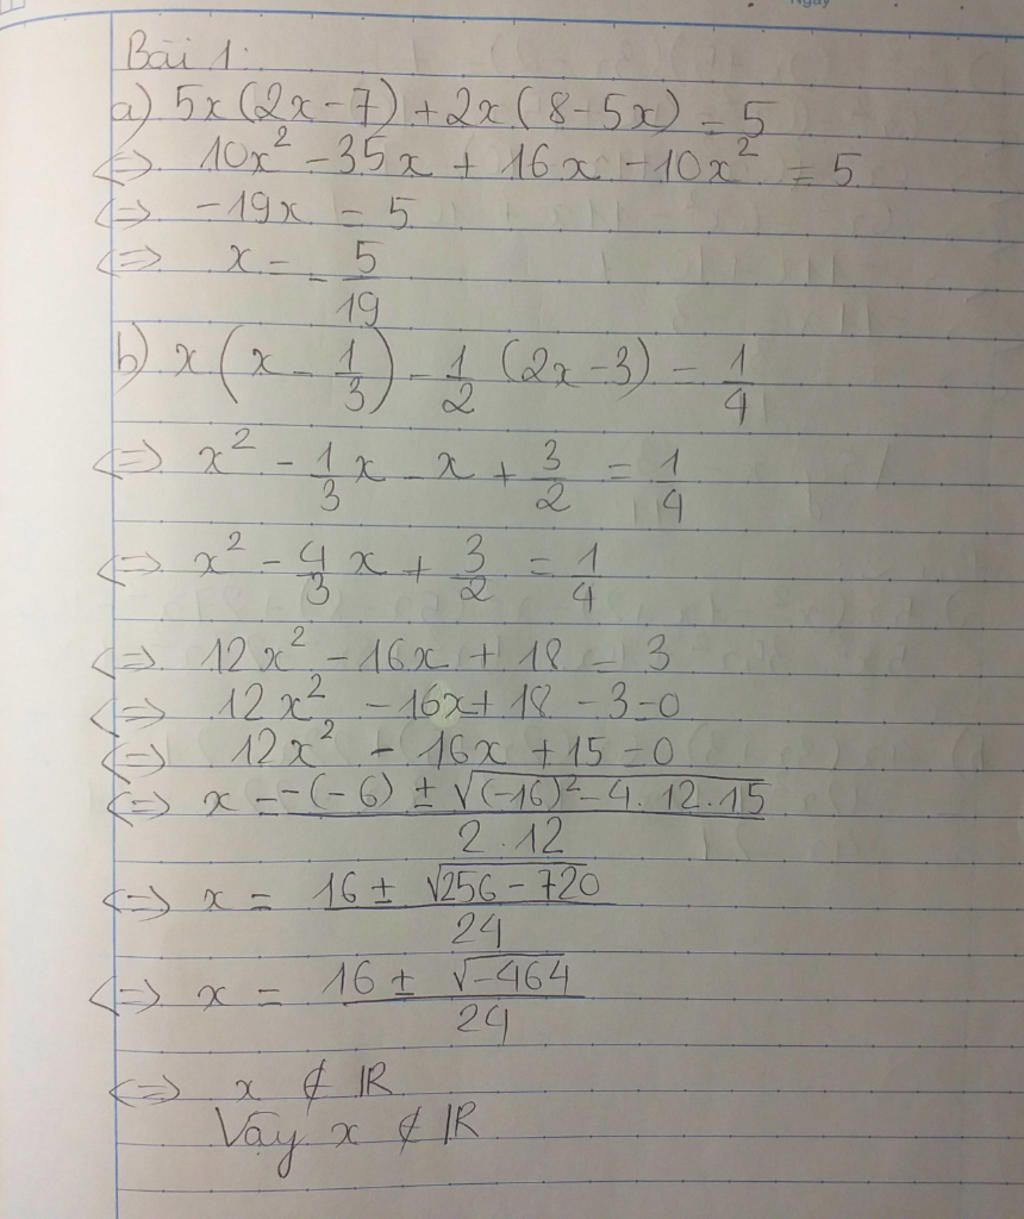 Ngày
Bài 1:
a) 5x(2x-7)+2x(8-5x) = 5
<=> 10x² - 35x + 16x - 10x² = 5
<=> -19x = 5
<=> x = -5/19
b) x(x - 1/3) - 1/2 (2x-3) = 1/4
<=> x² - 1/3 x - x + 3/2 = 1/4
<=> x² - 4/3 x + 3/2 = 1/4
<=> 12x² - 16x + 18 = 3
<=> 12x² - 16x + 18 - 3 = 0
<=> 12x² - 16x + 15 = 0
<=> x = (-(-6) ± √((-16)² - 4.12.15))/(2.12)
<=> x = (16 ± √(256 - 720))/24
<=> x = (16 ± √(-464))/24
<=> x ∉ ℝ
Vậy x ∉ ℝ